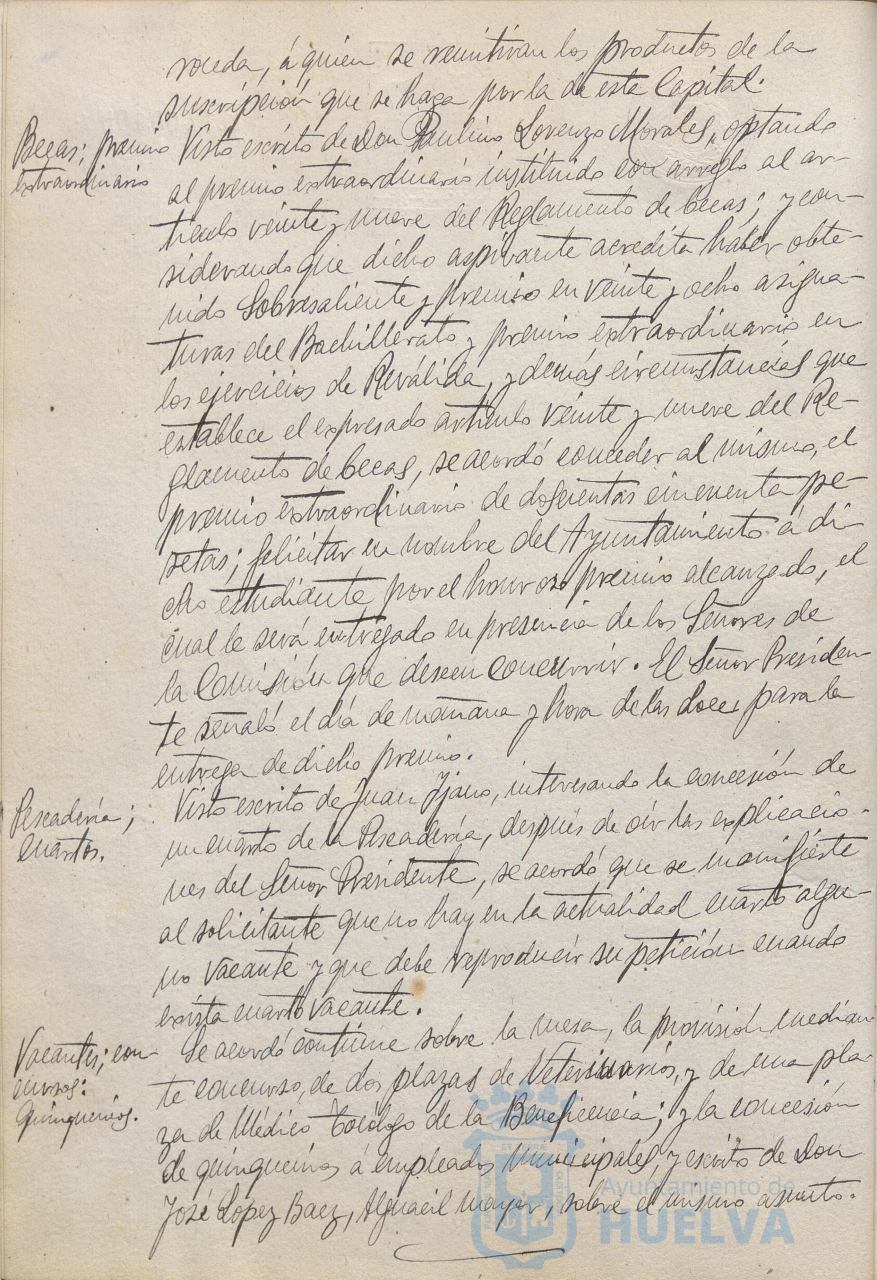 rrueda, á quien se remitiran los productos de la
suscripción que se haga por la de esta Capital.
Becas; premio
extraordinario
Visto escrito de Don Paulino Lorenzo Morales, optando
al premio extraordinario instituido con arreglo al ar-
tículo veinte y nueve del Reglamento de becas; y con-
siderando que dicho aspirante acredita haber obte-
nido Sobresaliente y premio en veinte y ocho asigna-
turas del Bachillerato y premio extraordinario en
los ejercicios de Reválida, y demás circunstancias que
establece el expresado artículo veinte y nueve del Re-
glamento de becas, se acordó conceder al mismo, el
premio extraordinario de doscientas cincuenta pe-
setas; felicitar en nombre del Ayuntamiento á di-
cho estudiante por el honroso premio alcanzado, el
cual le será entregado en presencia de los Señores de
la Comisión que deseen concurrir. El Señor Presiden-
te señaló el día de mañana y hora de las doce, para la
entrega de dicho premio.
Pescadería;
cuartos.
Visto escrito de Juan, interesando la concesión de
un cuarto de la Pescadería, después de oír las explicacio-
nes del Señor Presidente, se acordó que se manifieste
al solicitante que no hay en la actualidad cuarto algu-
no vacante y que debe reproducir su petición cuando
exista cuarto vacante.
Vacantes; con-
cursos:
Quinquenios.
Se acordó continue sobre la mesa, la provisión median-
te concurso, de dos plazas de Veterinarios, y de una pla-
za de Médico Tocólogo de la Beneficencia; y la concesión
de quinquenios á empleados municipales, y escrito de Don
José López Baez, Alguacil mayor, sobre el mismo asunto.
Ayuntamiento de
HUELVA